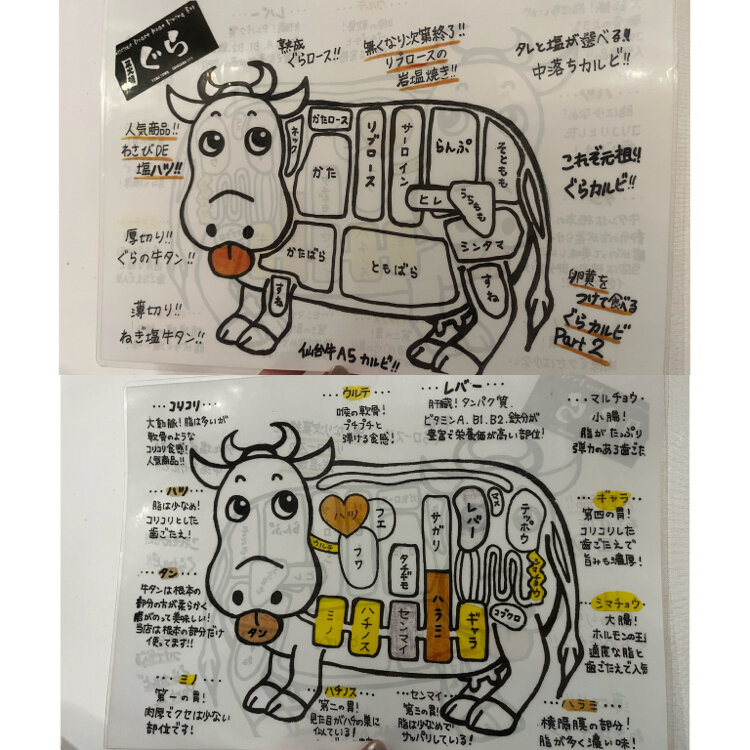 ぐら
熟成
ぐらロース!!
無くなり次第終了!!
リブロースの
岩塩焼き!!
タレと塩が選べる!!
中落ちカルビ!!
人気商品!!
わさびDE
塩ハツ!!
これぞ元祖!!
ぐらカルビ!!
厚切り!!
ぐらの牛タン!!
薄切り!!
ねぎ塩牛タン!!
卵黄を
つけて食べる
ぐらカルビ
Part 2
仙台牛A5カルビ!!
ネック
かたロース
かた
リブロース
サーロイン
らんぷ
そともも
ヒレ
うちもも
シンタマ
かたばら
ともばら
すね
すね
コリコリ
大動脈!脂は多いが
軟骨のような
コリコリ食感!
人気商品!!
ウルテ
喉の軟骨!
プチプチと
弾ける食感!
レバー
肝臓!タンパク質
ビタミンA.B1.B2.鉄分が
豊富で栄養価が高い部位!
マルチョウ
小腸!
脂がたっぷり
弾力のある歯ごたえ
ハツ
脂は少なめ!
コリコリとした
歯ごたえ!
ギャラ
第四の胃!
コリコリした
歯ごたえで
旨みも濃厚!
タン
牛タンは根本の
部分の方が柔らかく
脂がのって美味しい!
当店は根本の部分だけ
使ってます!!
シマチョウ
大腸!
ホルモンの王様
適度な脂と
歯ごたえで人気
ミノ
第一の胃!
肉厚でクセは少ない
部位です!
ハチノス
第二の胃!
見た目がハチの巣に
似ている!
センマイ
第三の胃!
脂は少なめで
サッパリしている!
ハラミ
横隔膜の部分!
脂が多く濃い味!
ハツ
フエ
ウルテ
フワ
タチギモ
サガリ
レバー
マメ
テッポウ
シマチョウ
コブクロ
タン
ミノ
ハチノス
センマイ
ハラミ
ギャラ